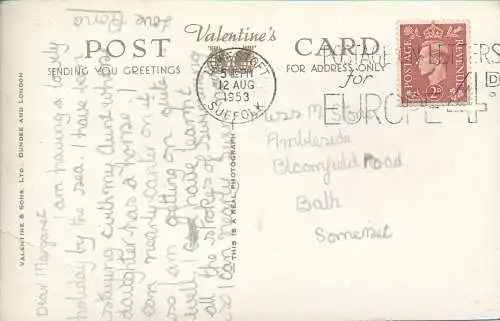 Valentine's
POST CARD
SENDING YOU GREETINGS
FOR ADDRESS ONLY
LOWESTOFT
5 PM
12 AUG
1953
SUFFOLK
for
EUROPE
POSTAGE
REVENUE
VALENTINE & SONS, LTD. DUNDEE AND LONDON
THIS IS A REAL PHOTOGRAPH
Dear Margaret
I am having a lovely
holiday by the sea. I have been
staying with my aunt whose
daughter has a horse! I
can nearly canter on it
so I am getting on quite
well, I have learnt
all the strokes of swimming
so I can nearly
Love
Miss M.
Ambleside
Bloomfield Road
Bath
Somerset